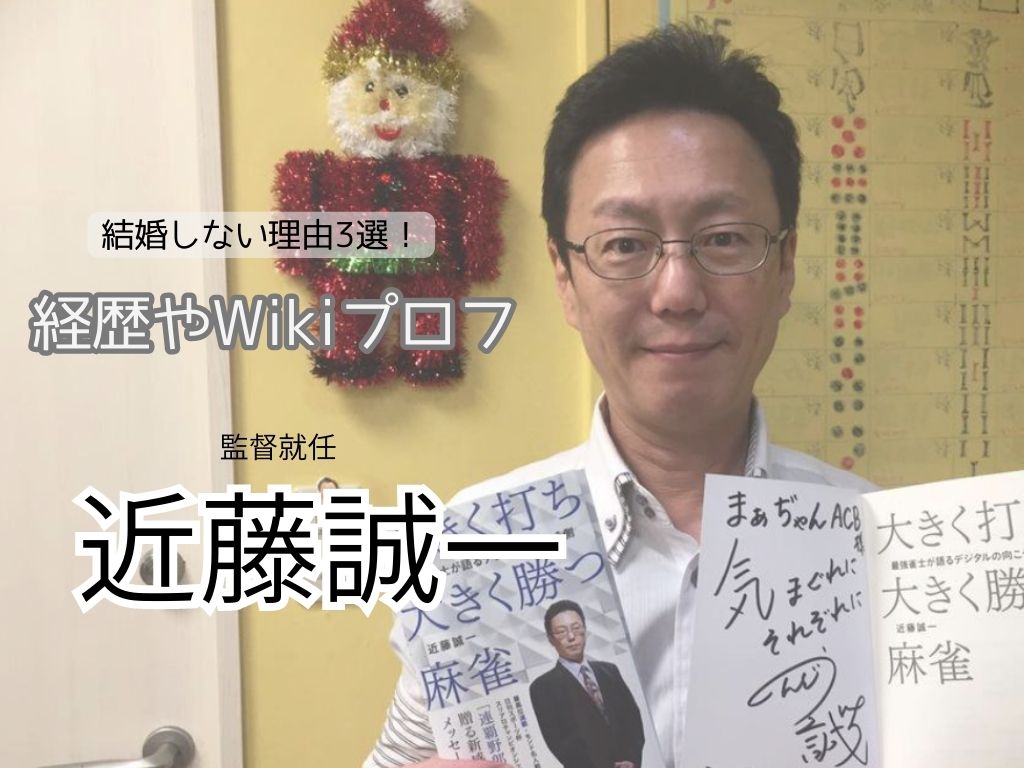 結婚しない理由3選！
経歴やWikiプロフ
監督就任
近藤誠一
きく打ち
大きく勝つ
近藤誠一
麻雀
日刊スポーツ杯
「連覇野郎
贈る新感
メッセー
まぁぢゃんACB様
気まぐれに
それぞれに
誠
大きく打
最強雀士が語るデジタルの向こ
大きく勝
近藤誠一
麻雀